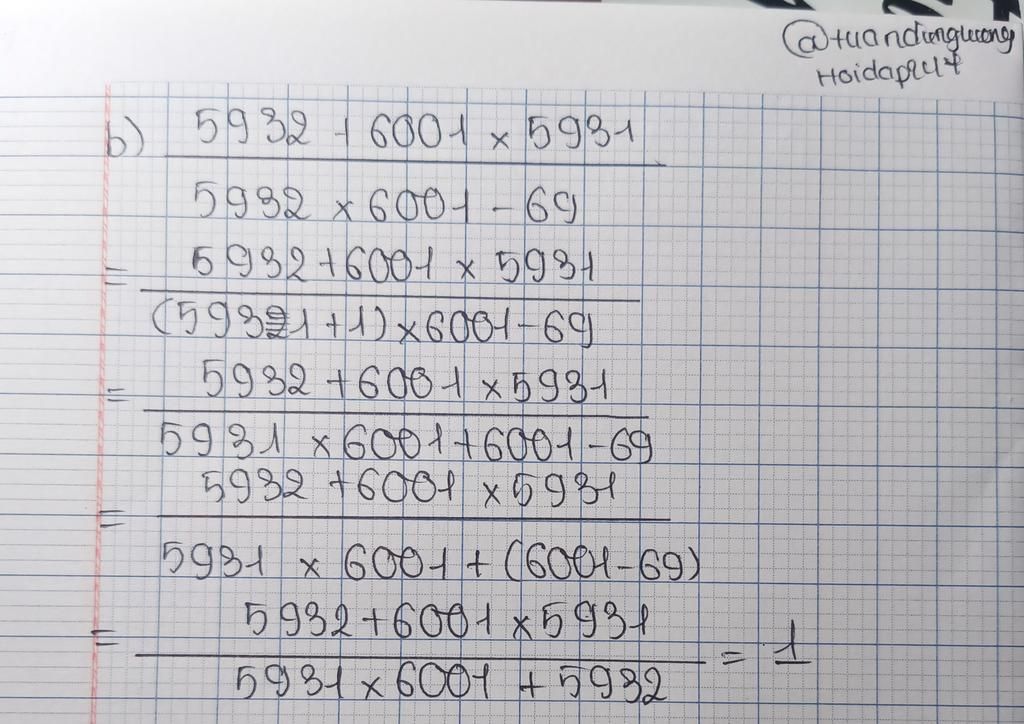 @tuandungluong
Hoidap247
b) 5932 + 6001 × 5931
5932 × 6001 - 69
= 5932 + 6001 × 5931
(5931 + 1) × 6001 - 69
= 5932 + 6001 × 5931
5931 × 6001 + 6001 - 69
= 5932 + 6001 × 5931
5931 × 6001 + (6001 - 69)
= 5932 + 6001 × 5931
5931 × 6001 + 5932
= 1